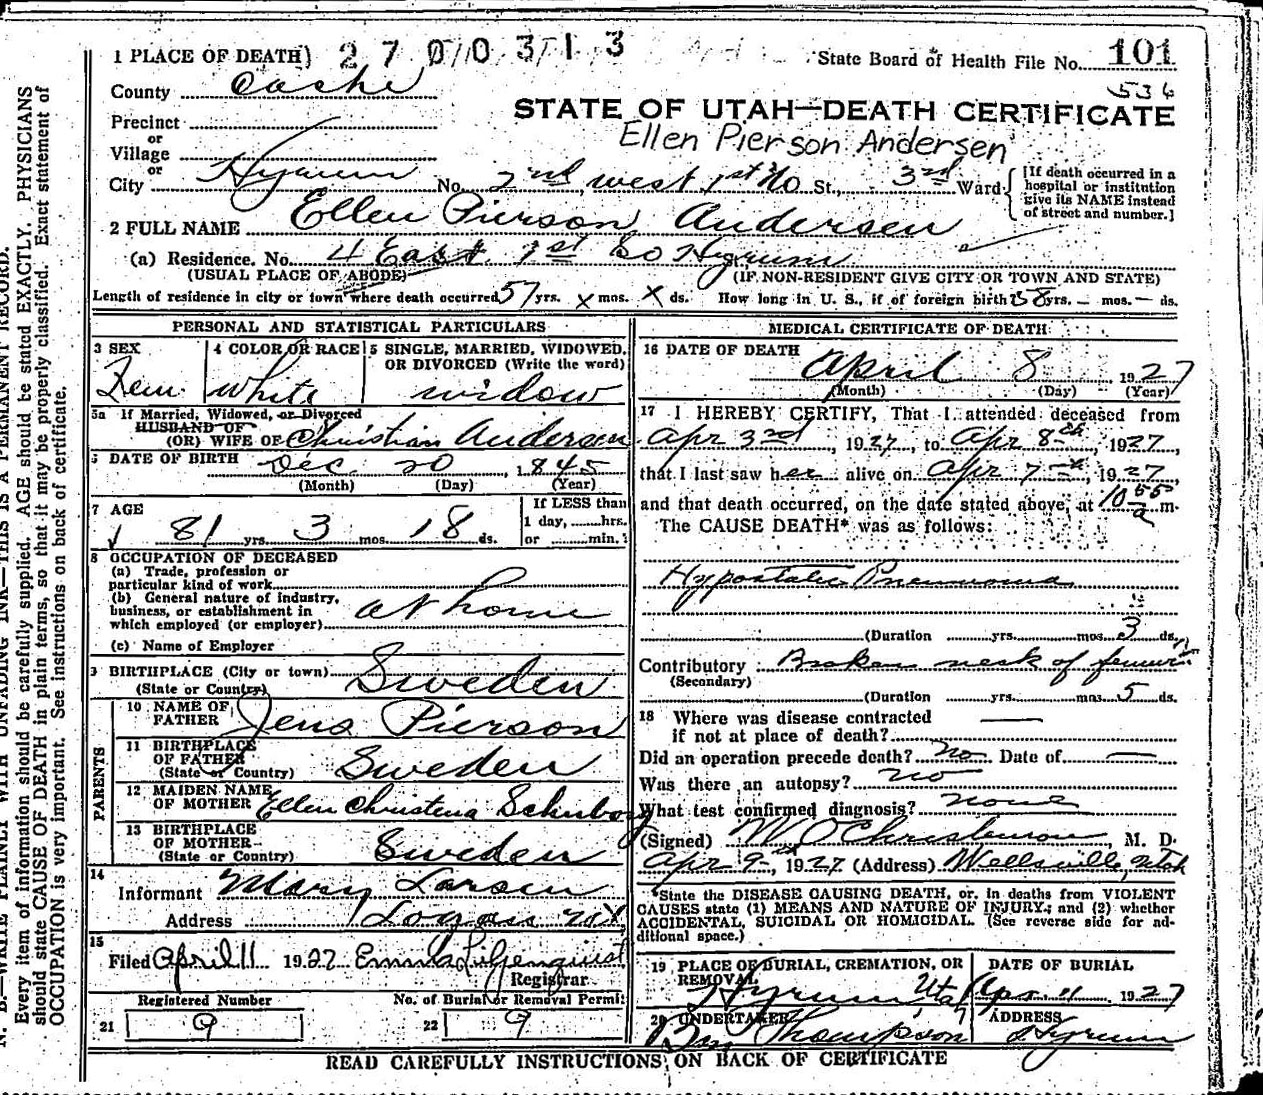 1 PLACE OF DEATH) 2 7 0 0 3 1 3 State Board of Health File No. 101
536
County Cache
STATE OF UTAH—DEATH CERTIFICATE
Precinct
or
Ellen Pierson Andersen
Village
or
City Hyrum No. 2nd west 1st No St., 3rd Ward
[If death occurred in a hospital or institution give its NAME instead of street and number.]
2 FULL NAME Ellen Pierson Andersen
(a) Residence. No. 4 East 1st So Hyrum
(USUAL PLACE OF ABODE) (IF NON-RESIDENT GIVE CITY OR TOWN AND STATE)
Length of residence in city or town where death occurred 57 yrs. x mos. x ds. How long in U. S., if of foreign birth 58 yrs. — mos. — ds.
PERSONAL AND STATISTICAL PARTICULARS
3 SEX Fem
4 COLOR OR RACE white
5 SINGLE, MARRIED, WIDOWED, OR DIVORCED (Write the word) widow
5a If Married, Widowed, or Divorced
HUSBAND OF
(OR) WIFE OF Christian Andersen
6 DATE OF BIRTH Dec 20, 1845
(Month) (Day) (Year)
7 AGE 81 yrs. 3 mos. 18 ds.
If LESS than
1 day, hrs.
or min.
8 OCCUPATION OF DECEASED
(a) Trade, profession or
particular kind of work
(b) General nature of industry,
business, or establishment in
which employed (or employer) at home
(c) Name of Employer
9 BIRTHPLACE (City or town)
(State or Country) Sweden
PARENTS
10 NAME OF FATHER Jens Pierson
11 BIRTHPLACE OF FATHER (State or Country) Sweden
12 MAIDEN NAME OF MOTHER Ellen Christena
13 BIRTHPLACE OF MOTHER (State or Country) Sweden
14
Informant Mary Larsen
Address Logan
15
Filed April 11 1927 Emma Liljenquist
Registrar
Registered Number No. of Burial or Removal Permit
21 9 22 9
MEDICAL CERTIFICATE OF DEATH
16 DATE OF DEATH
April 8 1927
(Month) (Day) (Year)
17 I HEREBY CERTIFY, That I attended deceased from
Apr 3rd, 1927, to Apr 8th, 1927,
that I last saw her alive on Apr 7th, 1927,
and that death occurred, on the date stated above, at 10 55 a m.
The CAUSE DEATH* was as follows:
Hypostatic Pneumonia
(Duration yrs. mos. 3 ds.
Contributory Broken neck of femur
(Secondary)
(Duration yrs. mos. 5 ds.
18 Where was disease contracted
if not at place of death? —
Did an operation precede death? no Date of —
Was there an autopsy? no
What test confirmed diagnosis? none
(Signed) W O Christenson, M. D.
Apr 9th, 1927 (Address) Wellsville, Utah
*State the DISEASE CAUSING DEATH, or, in deaths from VIOLENT
CAUSES state (1) MEANS AND NATURE OF INJURY; and (2) whether
ACCIDENTAL, SUICIDAL OR HOMICIDAL. (See reverse side for ad-
ditional space.)
19 PLACE OF BURIAL, CREMATION, OR REMOVAL Hyrum Utah
DATE OF BURIAL Apr. 11 1927
20 UNDERTAKER Thompson
ADDRESS Hyrum
READ CAREFULLY INSTRUCTIONS ON BACK OF CERTIFICATE
N. B.—WRITE PLAINLY WITH UNFADING INK—THIS IS A PERMANENT RECORD.
Every item of information should be carefully supplied. AGE should be stated EXACTLY. PHYSICIANS
should state CAUSE OF DEATH in plain terms, so that it may be properly classified. Exact statement of
OCCUPATION is very important. See instructions on back of certificate.